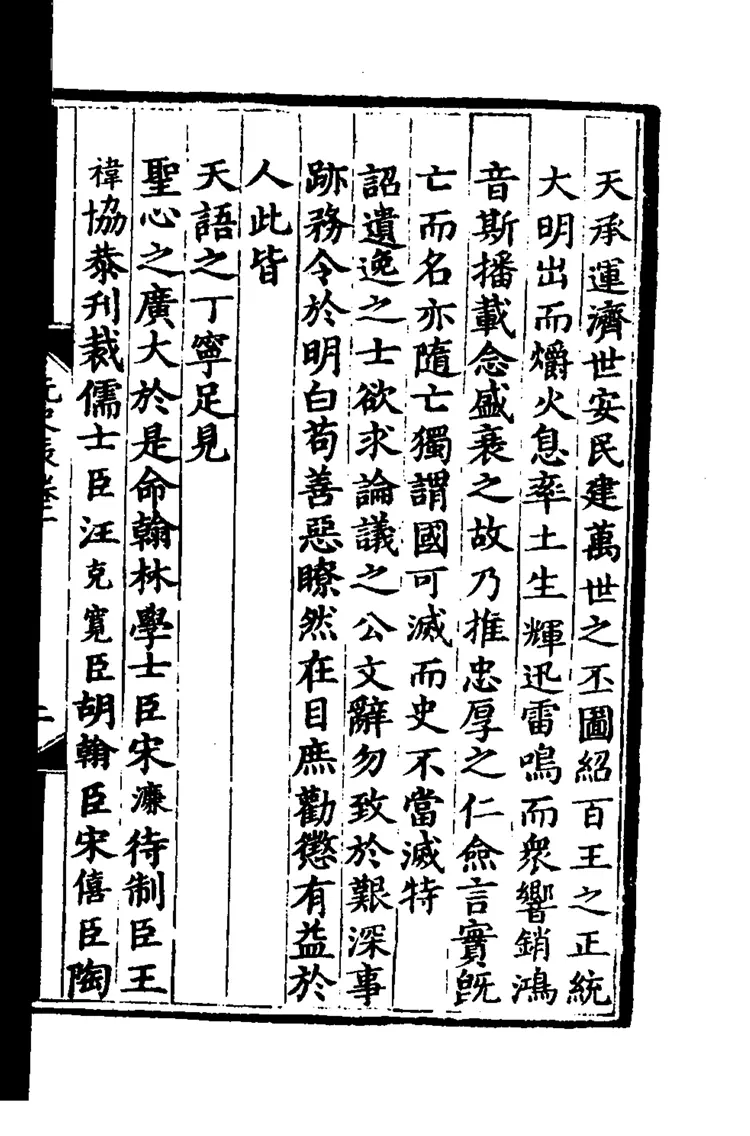 天承運濟世安民建萬世之丕圖紹百王之正統
大明出而爝火息率土生輝迅雷鳴而衆響銷鴻
音斯播載念盛衰之故乃推忠厚之仁僉言實既
亡而名亦隨亡獨謂國可滅而史不當滅特
詔遺逸之士欲求論議之公文辭勿致於艱深事
跡務令於明白苟善惡瞭然在目庶勸懲有益於
人此皆
天語之丁寧足見
聖心之廣大於是命翰林學士臣宋濂待制臣王
禕協恭刋裁儒士臣汪克寬臣胡翰臣宋僖臣陶